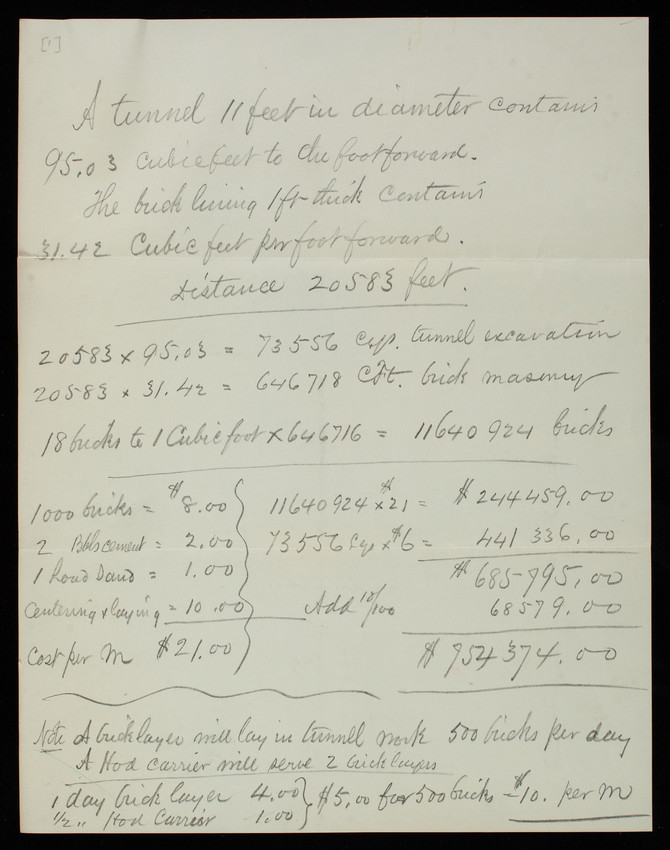 [1]
A tunnel 11 feet in diameter contains
95.03 cubic feet to the foot forward.
The brick lining 1 ft thick contains
31.42 Cubic feet per foot forward.
Distance 20583 feet.
20583 x 95.03 = 73556 Cyp. tunnel excavation
20583 x 31.42 = 646718 Cft. brick masonry
18 bricks to 1 Cubic foot x 646716 = 11640924 bricks
1000 bricks = $8.00 } 11640924 x $21 = $244459.00
2 Bbls cement = 2.00 73556 Cyp x $6 = 441336.00
1 Load Sand = 1.00 $685795.00
Centering & laying = 10.00 Add 10/100 68579.00
Cost per M $21.00 $754374.00
Note A bricklayer will lay in tunnel work 500 bricks per day
A Hod carrier will serve 2 bricklayers
1 day brick layer 4.00 } $5.00 for 500 bricks = $10. per M
1/2 " Hod Carrier 1.00